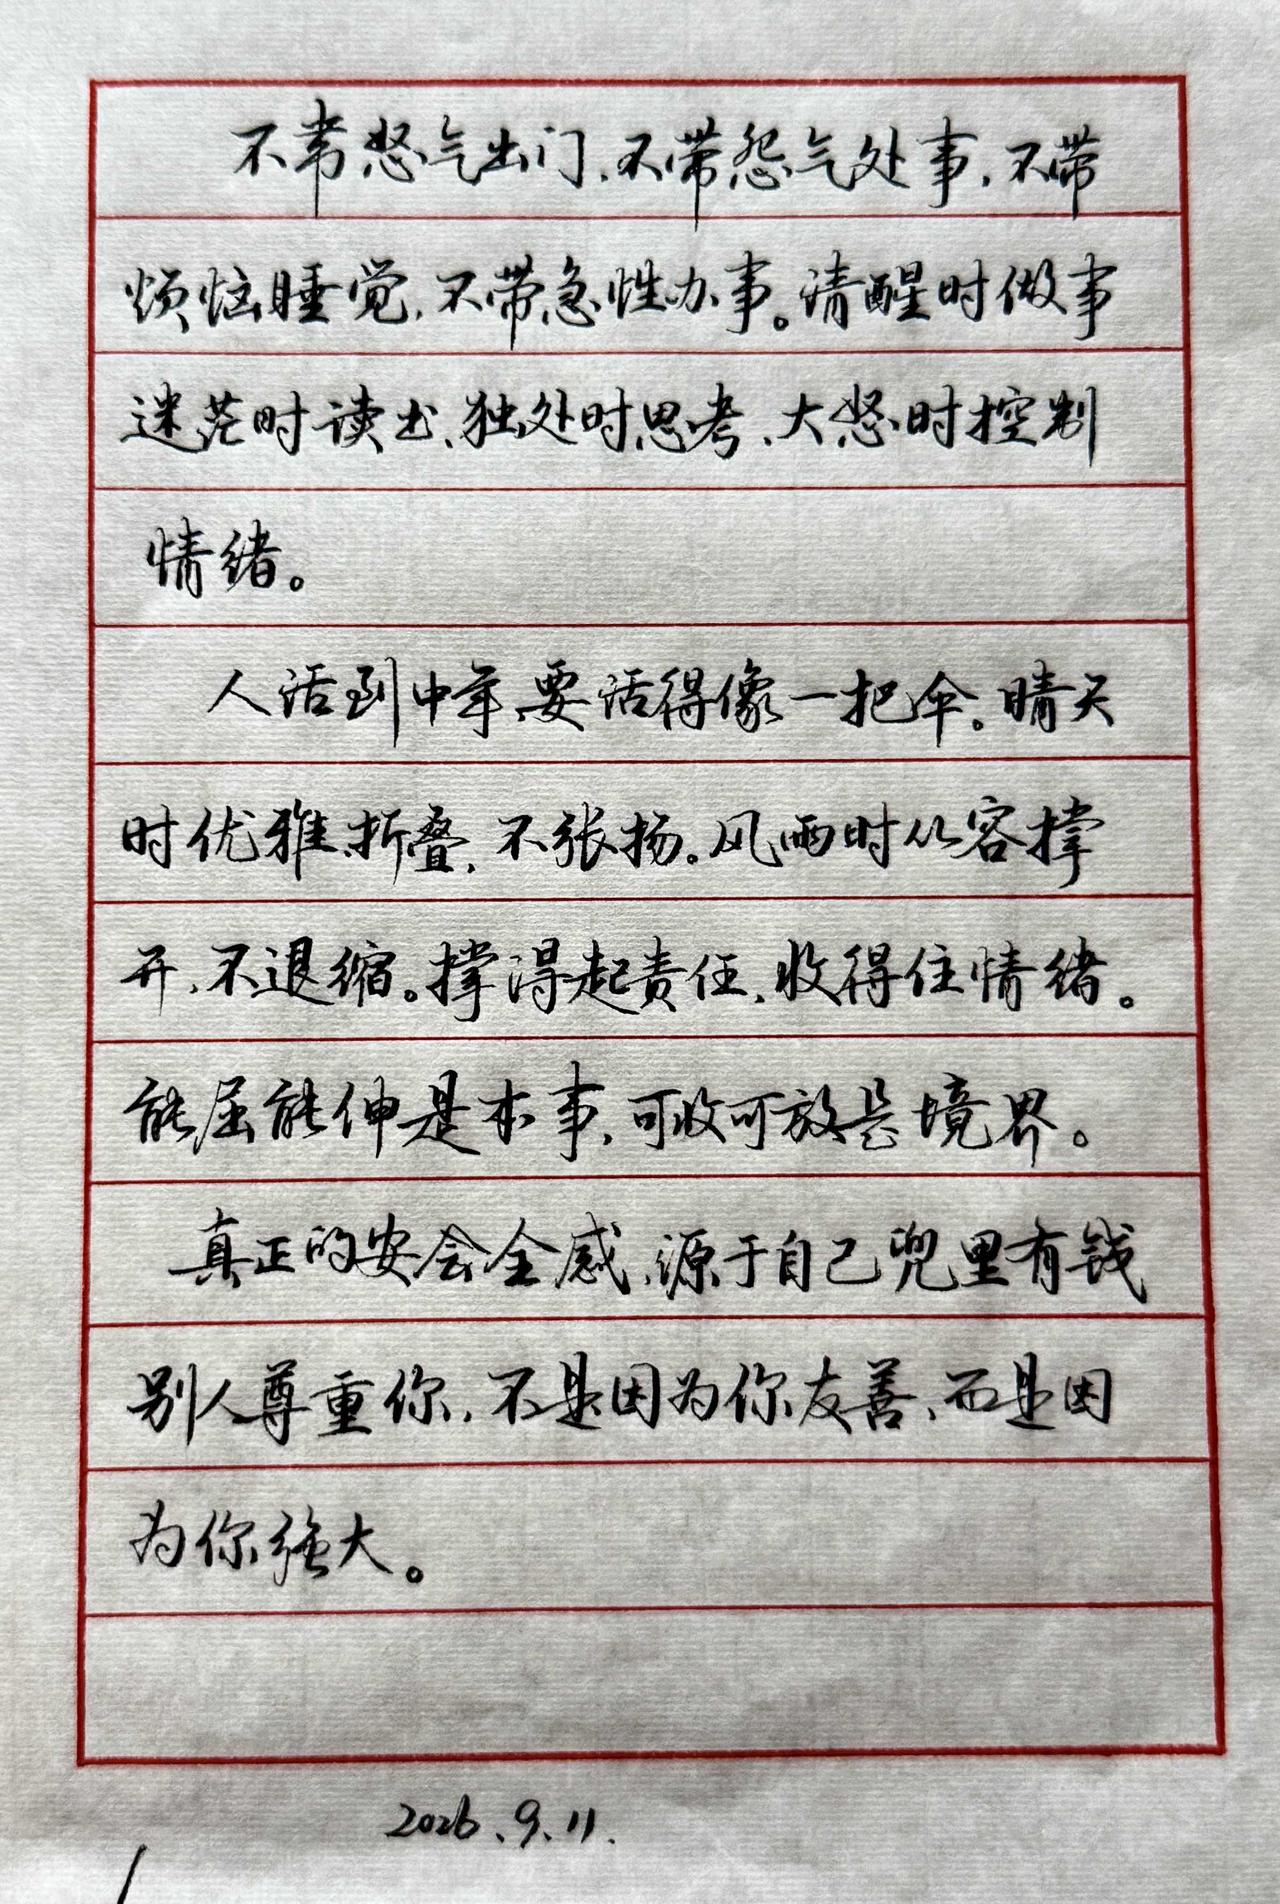 不带怒气出门,不带怨气处事,不带
烦恼睡觉,不带急性办事。清醒时做事
迷茫时读书、独处时思考、大怒时控制
情绪。
人活到中年、要活得像一把伞。晴天
时优雅折叠,不张扬。风雨时从容撑
开,不退缩。撑得起责任,收得住情绪。
能屈能伸是本事,可收可放是境界。
真正的安会全感,源于自己兜里有钱
别人尊重你,不是因为你友善,而是因
为你强大。
2026.9.11.